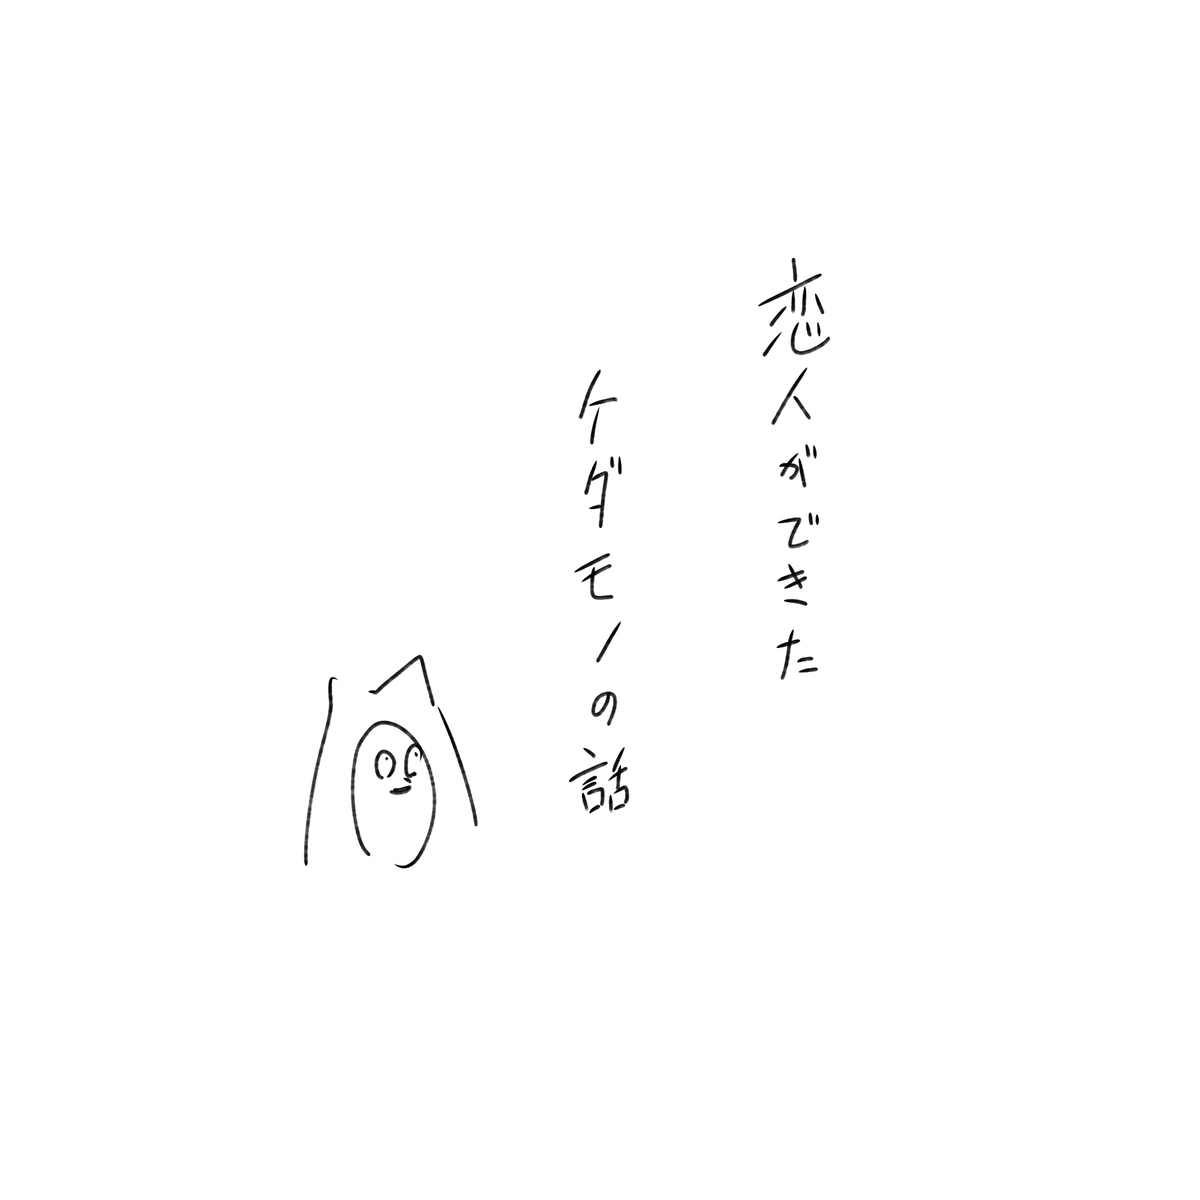 恋人ができた
ケダモノの話